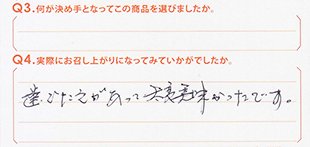 Q3.何が決め手となってこの商品を選びましたか。
Q4.実際にお召し上がりになってみていかがでしたか。
歯ごたえがあって大変美味かったです。